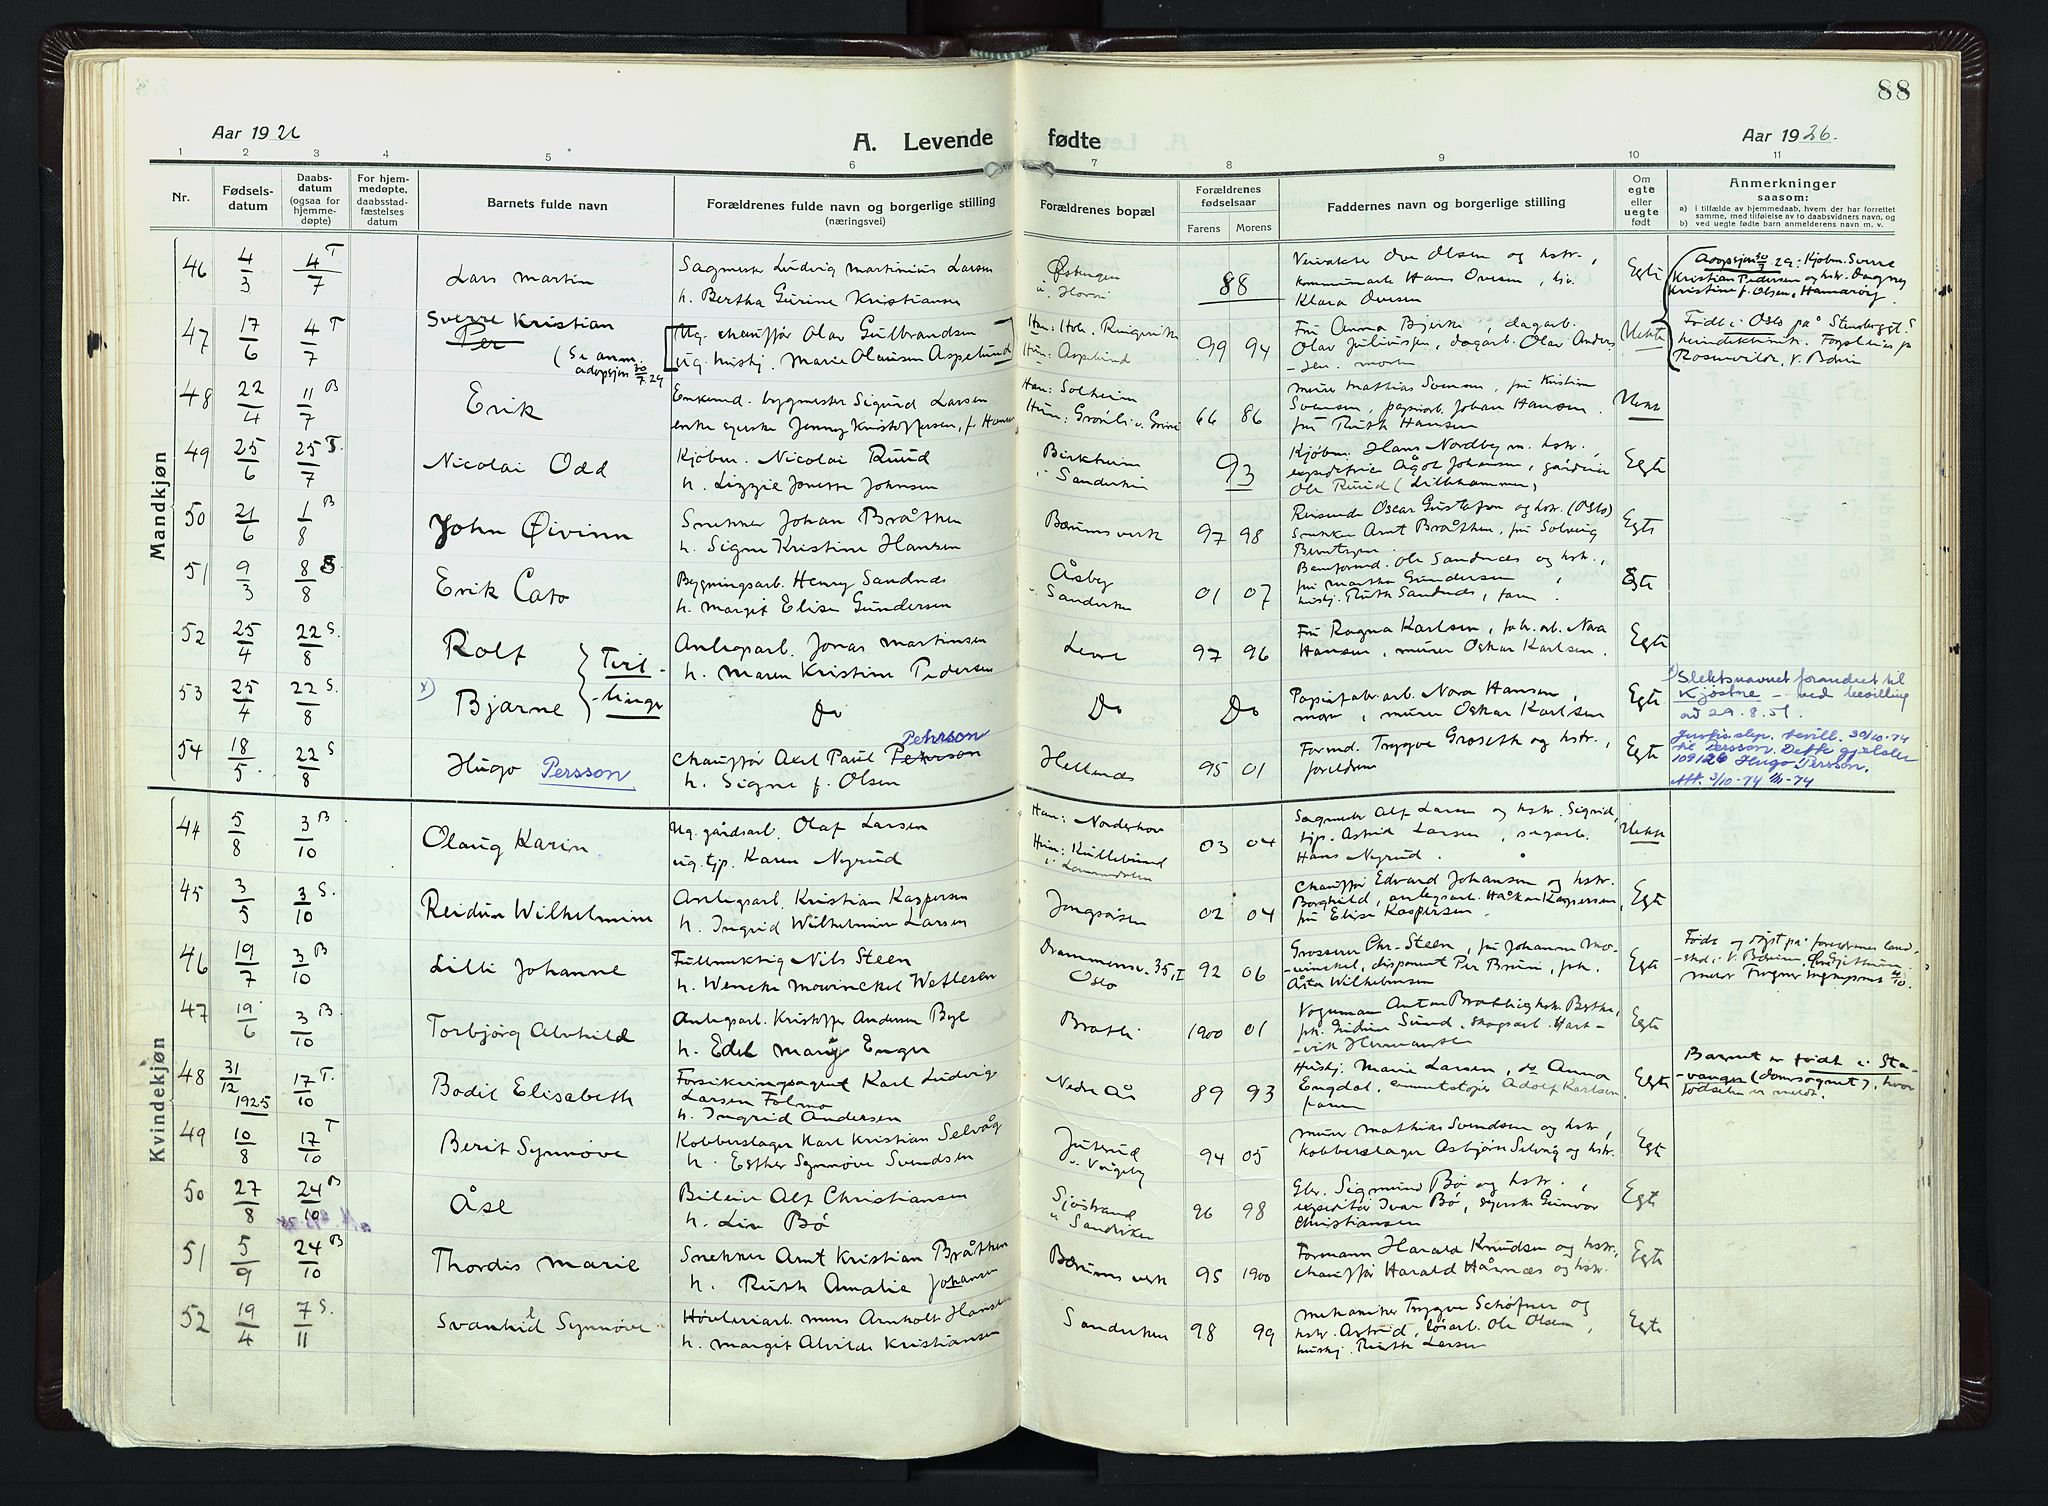 88
Aar 1926
A. Levende fødte
Aar 1926.
1 2 3 4 5 6 7 8 9 10 11
Nr.
Fødselsdatum
Daabsdatum (ogsaa for hjemmedøpte)
For hjemmedøpte, daabsstadfæstelses datum
Barnets fulde navn
Forældrenes fulde navn og borgerlige stilling (næringsvei)
Forældrenes bopæl
Forældrenes fødselsaar
Farens Morens
Faddernes navn og borgerlige stilling
Om egte eller uegte født
Anmerkninger saasom:
a) i tilfælde av hjemmedaab, hvem der har forrettet samme, med tilføielse av to daabsvidners navn, og
b) ved uegte fødte barn anmelderens navn m. v.
Mandkjøn
46 4/3 4/7 T Lars Martin
Sagmester Ludvig Martinius Larsen
h. Bertha Gurine Kristiansen
88
Veivokter Ove Olsen og hstr.,
Hans Ovesen,
Klara Ovesen
Egte
Adopsjon 30/7 29: Kjøbm. Sverre
Kristian Pedersen og hstr. Dagny
Kristine f. Olsen, Hamarøy.
47 17/6 4/7 T Sverre Kristian
Per
(Se anm. adopsjon 30/7 29
Ug. chauffør Olav Gulbrandsen
ug. hushj. Marie Olausen Aspelund
Hun: Aspelund
99 94
Fru Anna Bjerke, dagarb.
Olav Juliussen, dagarb. Olav Andersen. moren
Uekte
Født i Oslo på
48 22/4 11/7 B Erik
Enkemd. bygmester Sigurd Larsen
enke syerske Jenny Kristoffersen, f. Hansen
Han: Solheim
Hun: Grønli
66 86
Murer Mathias Svensen, fru Kristine
Svensen, papirarb. Johan Hansen
fru Ruth Hansen
Uekte
49 25/6 25/7 S. Nicolai Odd
Kjøbm. Nicolai Ruud
h. Lizzie Jonette Johnsen
Birkheim
Sandviken
93
Kjøbm. Hans Nordby m. hstr.,
Ågot Johansen,
Ole Ruud (Lillehammer)
Egte
50 21/6 1/8 B John Øivinn
Snekker Johan Bråthen
h. Signe Kristine Hansen
Bærums verk
97 98
Reisende Oscar Gustafson og hstr. (Oslo)
Snekker Arnt Bråthen, fru Solveig
Berntsen
Egte
51 9/3 8/8 S Erik Cato
Bygningsarb. Henry Sandnes
h. Margit Elise Gundersen
Åsby
Sandviken
01 07
Ole Sandnes og hstr.,
fru Martha Gundersen,
hushj. Ruth Sandnes, faren.
Egte
52 25/4 22/8 S. Rolf
Tvillinger
Anlegsarb. Jonas Martinsen
h. Maren Kristine Pedersen
97 96
Fru Ragna Karlsen, fabr. arb. Nora
Hansen, murer Oskar Karlsen.
Egte
53 25/4 22/8 S. x) Bjarne
Do
Do
Do
Papirfabr. arb. Nora Hansen,
mor, murer Oskar Karlsen
Egte
x) Slektsnavnet forandret til
Kjøstne - ved bevilling
av 29.8.51.
54 18/5 22/8 S Hugo Persson
Pehrson
Chauffør Axel Paul Pehrson
h. Signe f. Olsen
95 01
Formd. Trygve Groseth og hstr.,
foreldrene
Egte
bevill. 30/10-74
til Persson. Dette gjelder
Hugo Persson.
Kvindekjøn
44 5/8 3/10 B Olaug Karin
Ug. gårdsarb. Olaf Larsen
ug. tjp. Karen Nyrud
Han: Norderhov
03 04
Sagmester Alf Larsen og hstr. Sigrid,
tjp. Astrid Larsen, sagarb.
Hans Nyrud.
Uekte
45 3/5 3/10 S. Reidun Wilhelmine
Anlegsarb. Kristian Kaspersen
h. Ingrid Wilhelmine Larsen
Jongsåsen
02 04
Chauffør Edvard Johansen og hstr.
Borghild, anlegsarb. Håkon Kaspersen,
fru Elise Kaspersen.
Egte
46 19/7 3/10 B Lilli Johanne
Fullmektig Nils Steen
h. Wencke Mowinckel Wetlesen
Drammensv. 35, I
Oslo
92 06
Grosserer Chr. Steen, fru Johanne Mowinckel, disponent Per Bruun, frk.
Åsta Wilhelmsen
Egte
47 19/6 3/10 B. Torbjørg Alvhild
Anlegsarb. Kristoffer Andersen Bye
h. Edel Mary Enger
Bratli
1900 01
Vognman Anton Bratlie og hstr. Berthe,
frk. Gudrun Sund, skogsarb. Hartvik Hermansen
Egte
48 31/12 1925 17/10 T. Bodil Elisabeth
Forsikringsagent Karl Ludvig
Larsen Folmo
h. Ingrid Andersen
Nedre Ås
89 93
Hushj. Marie Larsen, do Anna
Engdal, Adolf Karlsen,
faren
Egte
Barnet er født i Stavanger (domsognet), hvor
fødselen er meldt.
49 10/8 17/10 T Berit Synnøve
Kobberslager Karl Kristian Selvåg
h. Esther Synnøve Svendsen
Jutrud
94 05
Murer Mathias Svendsen og hstr.,
kobberslager Asbjørn Selvåg og hstr.
Egte
50 27/8 24/10 B Åse
Bileier Alf Christiansen
h. Liv Bø
Sjøstrand
Sandviken
96 98
Sigmund Bø og hstr.,
ekspeditør Ivar Bø, syerske Gunvor
Christiansen
Egte
51 5/9 24/10 B Thordis Marie
Snekker Arnt Kristian Bråthen
h. Ruth Amalie Johansen
Bærums verk
95 1900
Formann Harald Knudsen og hstr.,
chauffør Harald Hårnæs og hstr.
Egte
52 19/4 7/11 S. Svanhild Synnøve
Høvleriarb. Mons Arnholt Hansen
h. Margit Alvilde Kristiansen
Sandviken
98 99
Mekaniker Trygve Schøfner og
hstr. Astrid, løsarb. Ole Olsen,
hushj. Ruth Larsen
Egte